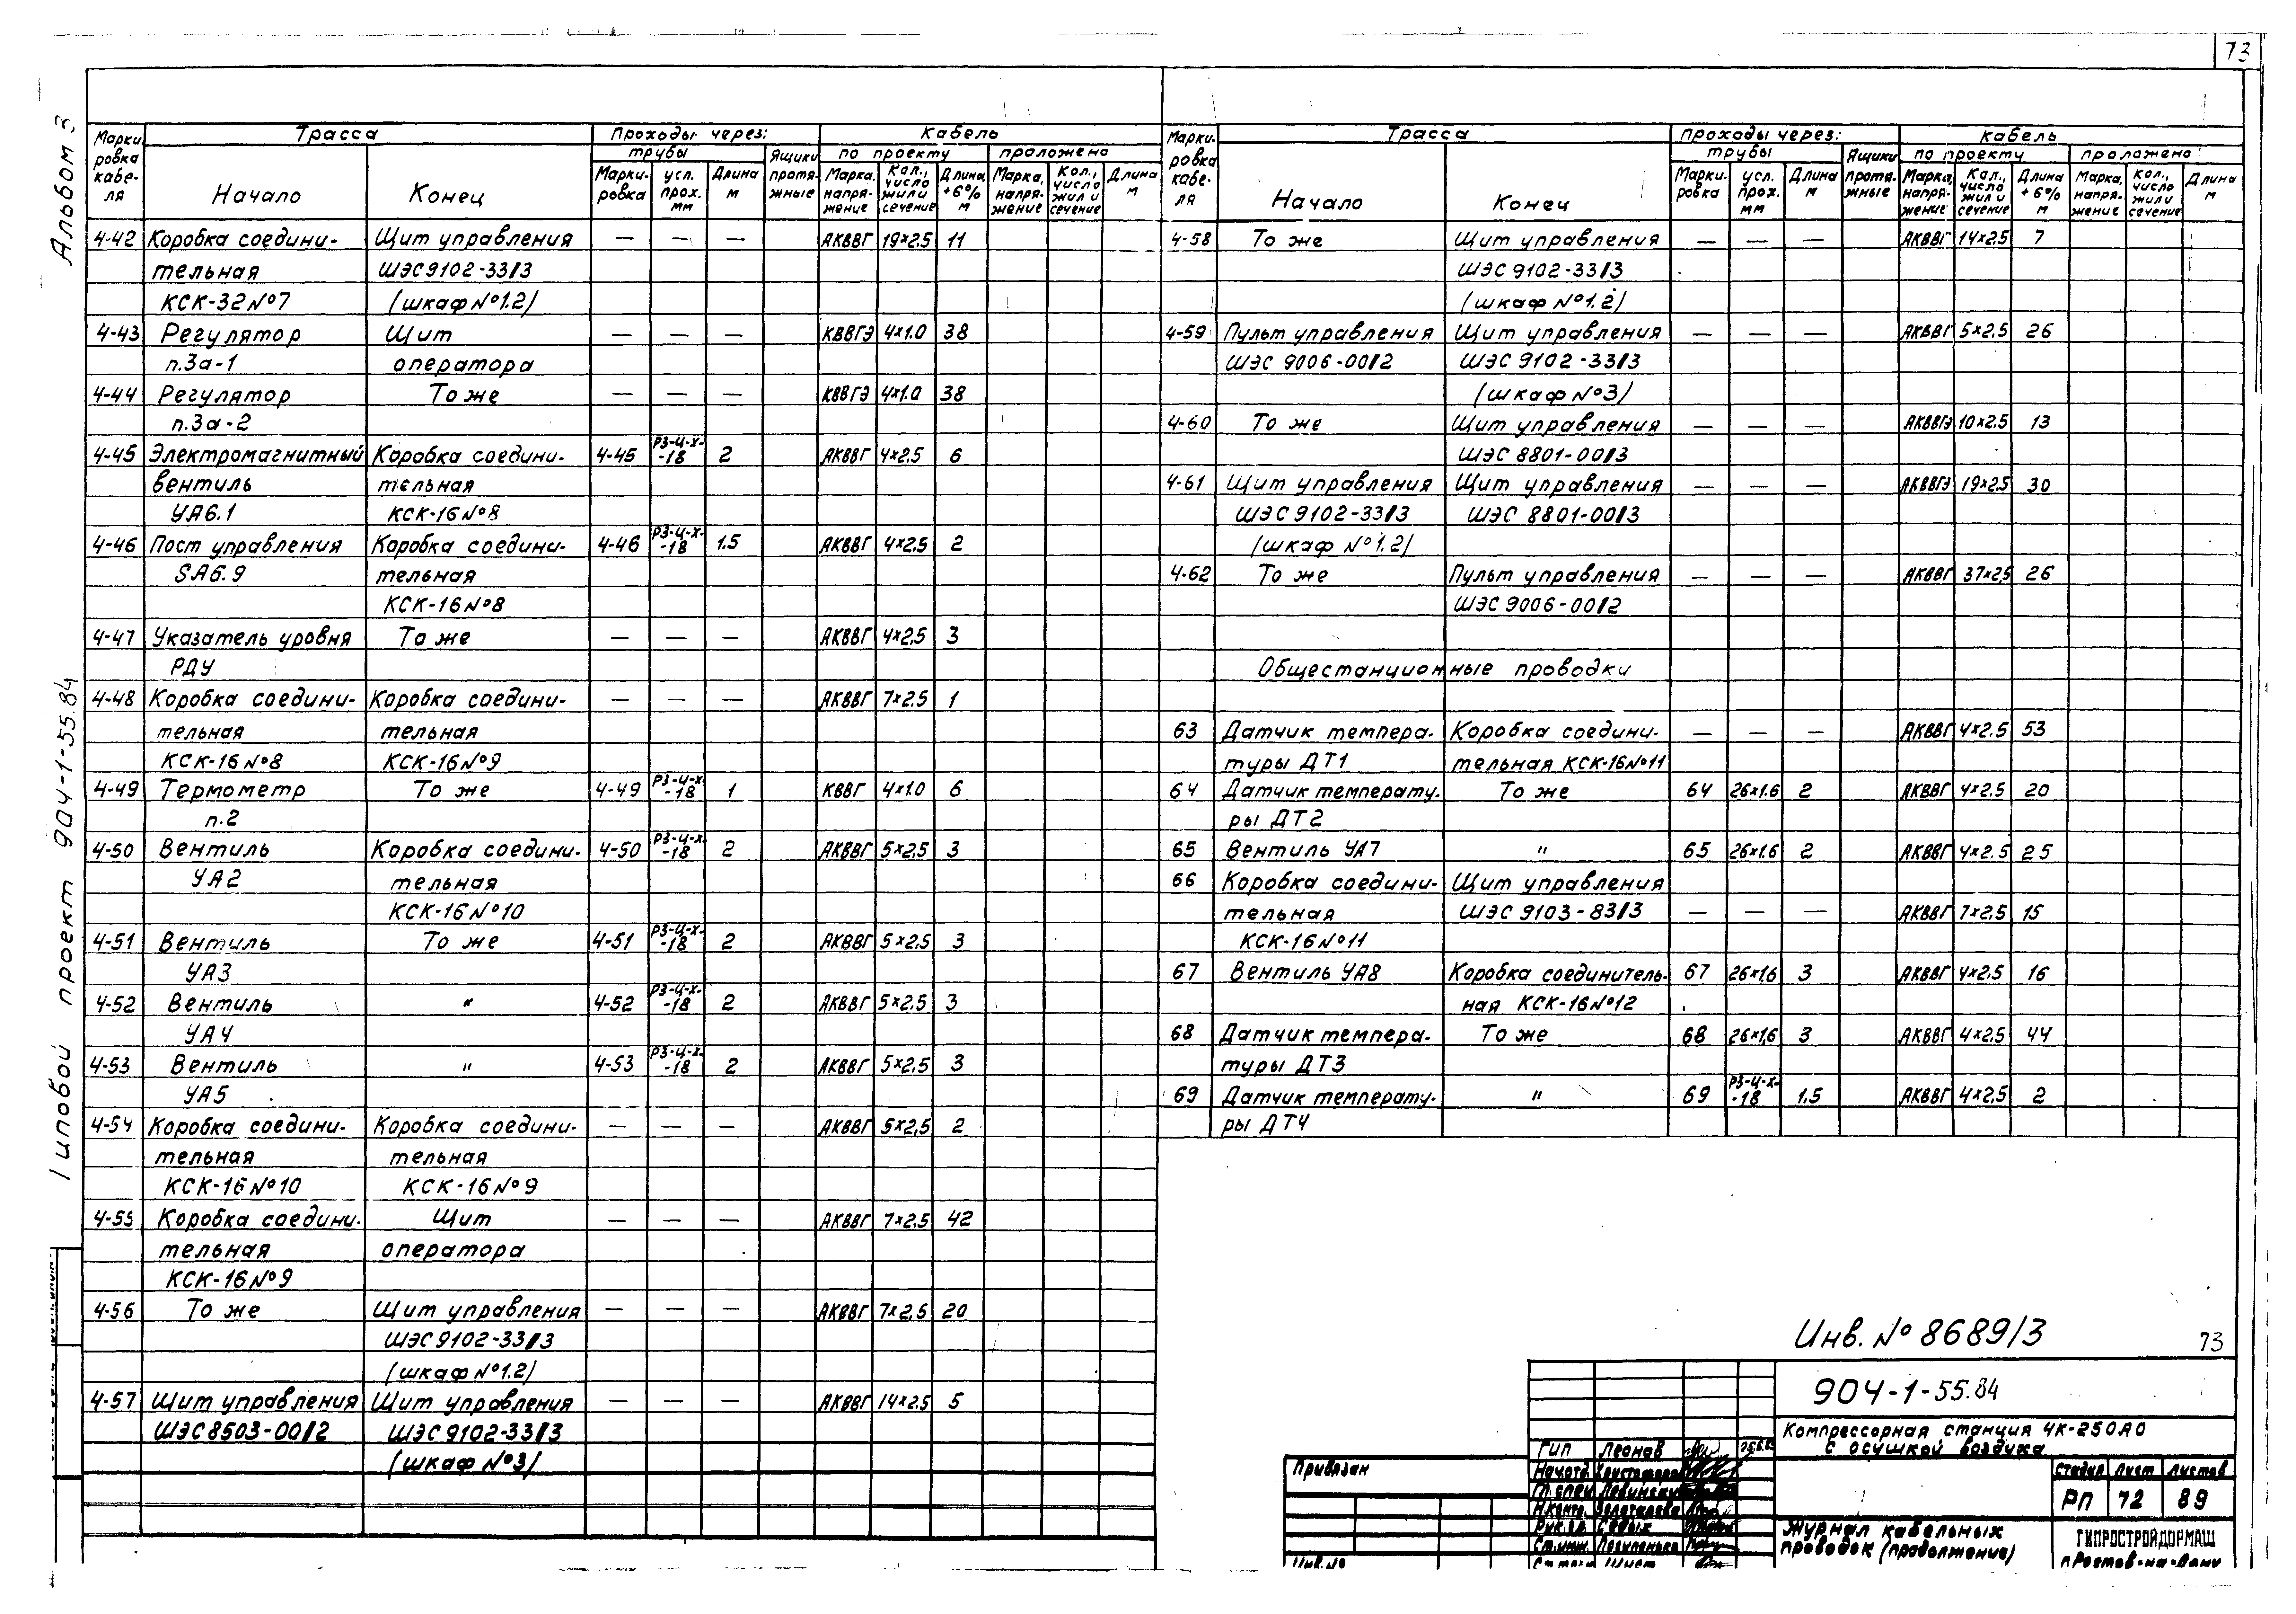 73
Альбом 3
Типовой проект 904-1-55.84
Марки- ровка кабе- ля | Трасса | Проходы через: | Кабель
трубы | Ящики протя- жные | по проекту | проложено
Начало | Конец | Марки- ровка | усл. прох. мм | Длина м | Марка, напря- жение | Кол., число жил и сечение | Длина, +6% м | Марка, напря- жение | Кол., число жил и сечение | Длина м
4-42 Коробка соедини- Щит управления — — — АКВВГ 19×2.5 11
тельная ШЭС9102-33/3
КСК-32№7 (шкаф №1.2)
4-43 Регулятор Щит — — — КВВГЭ 4×1.0 38
п.3а-1 оператора
4-44 Регулятор То же — — — КВВГЭ 4×1.0 38
п.3а-2
4-45 Электромагнитный Коробка соедини- 4-45 РЗ-Ц-Х--18 2 АКВВГ 4×2.5 6
вентиль тельная
УА6.1 КСК-16№8
4-46 Пост управления Коробка соедини- 4-46 РЗ-Ц-Х--18 1.5 АКВВГ 4×2.5 2
SА6.9 тельная
КСК-16№8
4-47 Указатель уровня То же — — — АКВВГ 4×2.5 3
РДУ
4-48 Коробка соедини- Коробка соедини- — — — АКВВГ 7×2.5 1
тельная тельная
КСК-16№8 КСК-16№9
4-49 Термометр То же 4-49 РЗ-Ц-Х--18 1 КВВГ 4×1.0 6
п.2
4-50 Вентиль Коробка соедини- 4-50 РЗ-Ц-Х--18 2 АКВВГ 5×2.5 3
УА2 тельная
КСК-16№10
4-51 Вентиль То же 4-51 РЗ-Ц-Х--18 2 АКВВГ 5×2.5 3
УА3
4-52 Вентиль " 4-52 РЗ-Ц-Х--18 2 АКВВГ 5×2.5 3
УА4
4-53 Вентиль " 4-53 РЗ-Ц-Х--18 2 АКВВГ 5×2.5 3
УА5
4-54 Коробка соедини- Коробка соедини- — — — АКВВГ 5×2.5 2
тельная тельная
КСК-16№10 КСК-16№9
4-55 Коробка соедини- Щит — — — АКВВГ 7×2.5 42
тельная оператора
КСК-16№9
4-56 То же Щит управления — — — АКВВГ 7×2.5 20
ШЭС9102-33/3
(шкаф №1.2)
4-57 Щит управления Щит управления — — — АКВВГ 14×2.5 5
ШЭС8503-00/2 ШЭС9102-33/3
(шкаф №3)
Марки- ровка кабе- ля | Трасса | Проходы через: | Кабель
трубы | Ящики протя- жные | по проекту | проложено
Начало | Конец | Марки- ровка | усл. прох. мм | Длина м | Марка, напря- жение | Кол., число жил и сечение | Длина +6% м | Марка, напря- жение | Кол., число жил и сечение | Длина м
4-58 То же Щит управления — — — АКВВГ 14×2.5 7
ШЭС 9102-33/3
(шкаф №1.2)
4-59 Пульт управления Щит управления — — — АКВВГ 5×2.5 26
ШЭС 9006-00/2 ШЭС 9102-33/3
(шкаф №3)
4-60 То же Щит управления — — — АКВВГЭ 10×2.5 13
ШЭС 8801-00/3
4-61 Щит управления Щит управления — — — АКВВГЭ 19×2.5 30
ШЭС 9102-33/3 ШЭС 8801-00/3
(шкаф №1.2)
4-62 То же Пульт управления — — — АКВВГ 37×2.5 26
ШЭС 9006-00/2
Общестанционные проводки
63 Датчик темпера- Коробка соедини- — — — АКВВГ 4×2.5 53
туры ДТ1 тельная КСК-16№11
64 Датчик температу- То же 64 26×1.6 2 АКВВГ 4×2.5 20
ры ДТ2
65 Вентиль УА7 " 65 26×1.6 2 АКВВГ 4×2.5 25
66 Коробка соедини- Щит управления
тельная ШЭС 9103-83/3 — — — АКВВГ 7×2.5 15
КСК-16№11
67 Вентиль УА8 Коробка соединитель- 67 26×1.6 3 АКВВГ 4×2.5 16
ная КСК-16№12
68 Датчик темпера- То же 68 26×1.6 3 АКВВГ 4×2.5 44
туры ДТ3
69 Датчик температу- " 69 РЗ-Ц-Х--18 1.5 АКВВГ 4×2.5 2
ры ДТ4
Инв. № 8689/3
73
904-1-55.84
Компрессорная станция 4К-250А0
с осушкой воздуха
Гип Леонов
Привязан
Инв.№
Стадия Лист Листов
РП 72 89
Журнал кабельных
проводок (продолжение)
ГИПРОСТРОЙДОРМАШ
г.Ростов-на-Дону